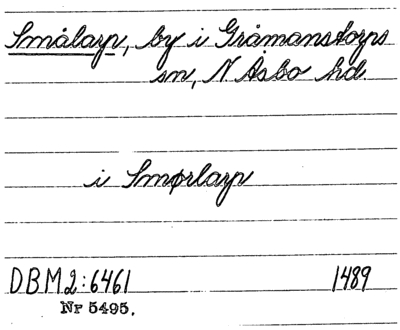 Smålarp, by i Gråmanstorps
sn, N Åsbo hd.
i Smørlarp
DBM2:6461 1489
Nr 5495.